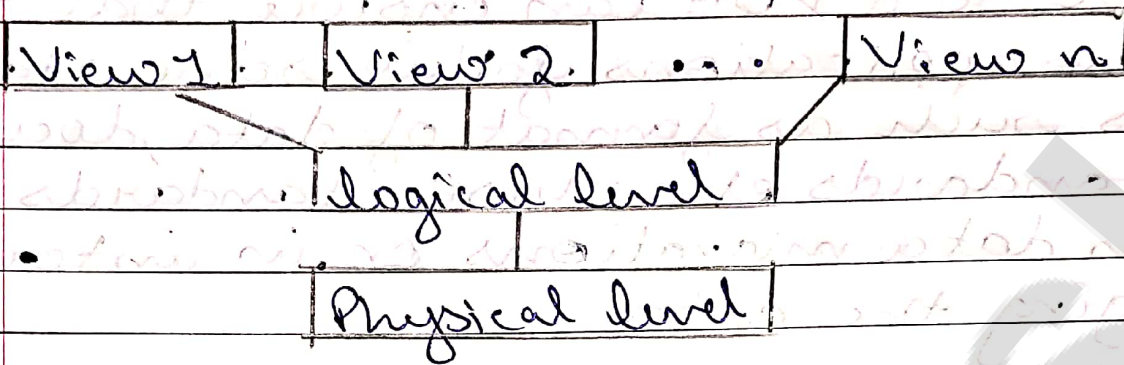 View 1 View 2 ... View n
logical level
Physical level